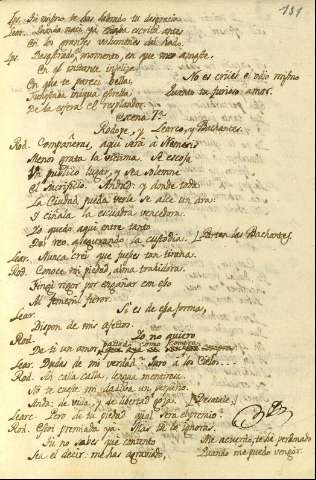 131
Ips. Tu mismo te has labrado tu desgracia
Lear. Quando nací ya estaba escrita antes
En los grandes volumenes del hado.
Ips. Desgraciado momento, en que
En el instante infeliz
En que te parecí bella.
iniqua estrella
De la esfera el resplandor.
No es cruel el odio mismo
Quanto tu furioso amor.
Escena 7ª
Rodope, y Learco, y Bachantes.
Rod. Compañeras, aqui será à Nemesis
Menos grata la victima. Se escoja
Un publico lugar, y sea solemne
El Sacrificio. Andad: y donde toda
La Ciudad pueda verle se alce un ara:
I señala la escuadra vencedora.
Yo quedo aqui entre tanto
Del reo asegurando la custodia. Partan las Bachantes
Lear. Nunca crei que fueses tan tirana.
Rod. Conoce mi piedad, alma trahidora.
Fingí rigor por engañar con eso
Al femenil furor.
Lear. Si es de esa forma,
Dispon de mis afectos.
Rod. Yo no quiero
De ti un amor, como
Lear. Dudas de mi verdad? Juro á los Cielos...
Rod. Ah calla calla, lengua mentirosa
No te cueste mi dadiva un perjurio.
Anda: de vida, y de libertad goza. Desatale.
Learc. Pero de tu piedad qual será el premio?
Rod. Esta premiada ya. Mas tu lo ignoras.
Tu no sabes que contento
Sea el decir: me has agraviado,
Me acuerdo, te he perdonado
Quando me puedo vengar.